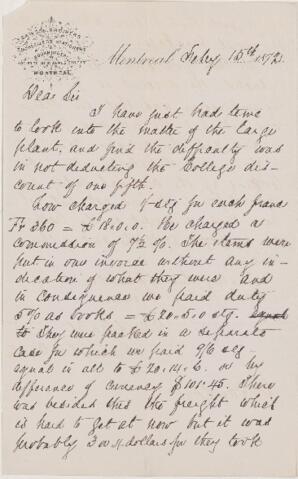 MONTREAL
Montreal Feby 15th 1872
Dear Sir
I have just had time
to look into the matter of the large
plant, and find the difficulty was
in not deducting the College dis-
count of one fifth.
Low charged / stg for each franc
Fr 360 = £18.0.0. He charged a
commission of 7½ %. The items were
put in one invoice without any in-
dication of what they were and
in consequence we paid duty
5% as books = £20.5.0 stg.
to They were packed in a separate
case for which we paid 9/6 stg
equal in all to £20.14.6. or by
difference of currency $101.45. There
was besides this the freight which
is hard to get at now but it was
probably 3 or 4 dollars for they took